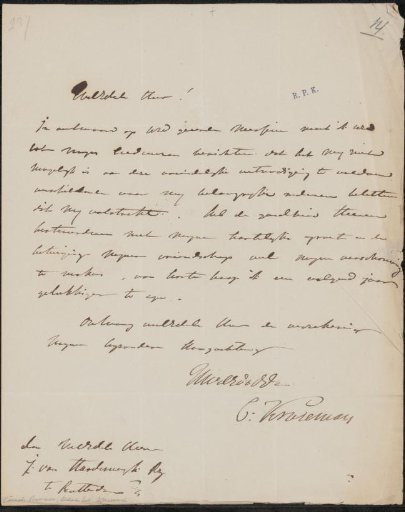 14
R.P.K.
WelEdele Heer!
In antwoord op UwE geeerde Missive moet ik UwE
tot mijn leedwezen berichten dat het mij niet
mogelijk is aan die vriendelijke uitnodiging te voldoen
verscheidene voor mij belangrijke redenen beletten
dit mij volstrekt. Wil de goedheid
met mijne hartelijke groet en de
betuiging mijner vriendschap wel mijne verschoning
te maken. van harte hoop ik een volgend jaar
gelukkiger te zijn.
Ontvang weledele Heer de verzekering
mijner bijzondere Hoogachting
UwEd
C: Kruseman
Den WelEdele Heer
J. van Harderwijk Rz
te Rotterdam